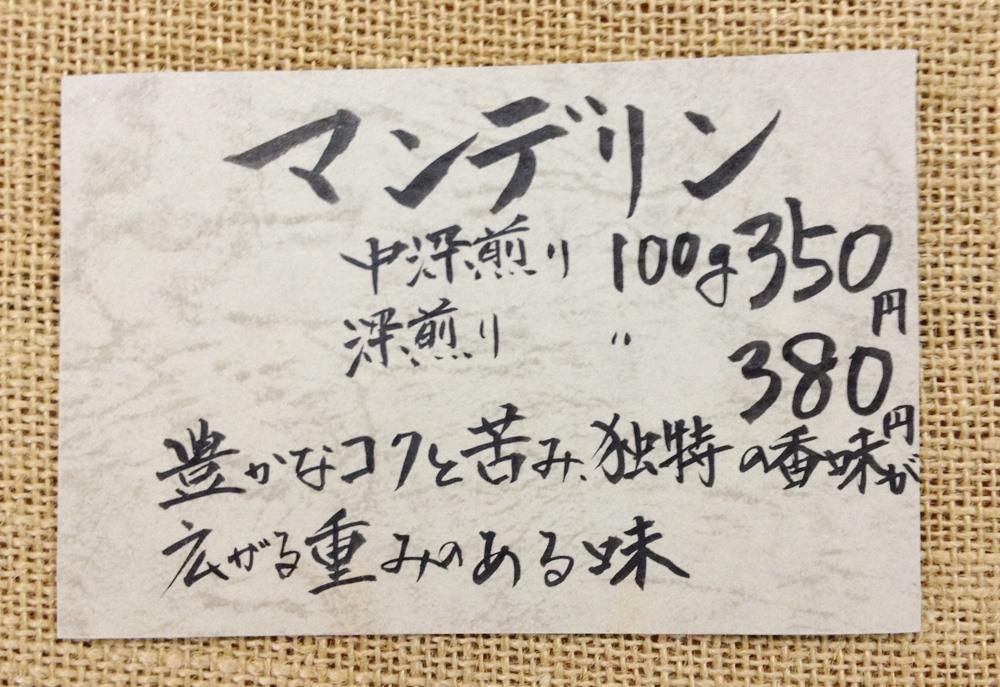 マンデリン
中深煎り 100g 350円
深煎り 〃 380円
豊かなコクと苦み、独特の香味が
広がる重みのある味